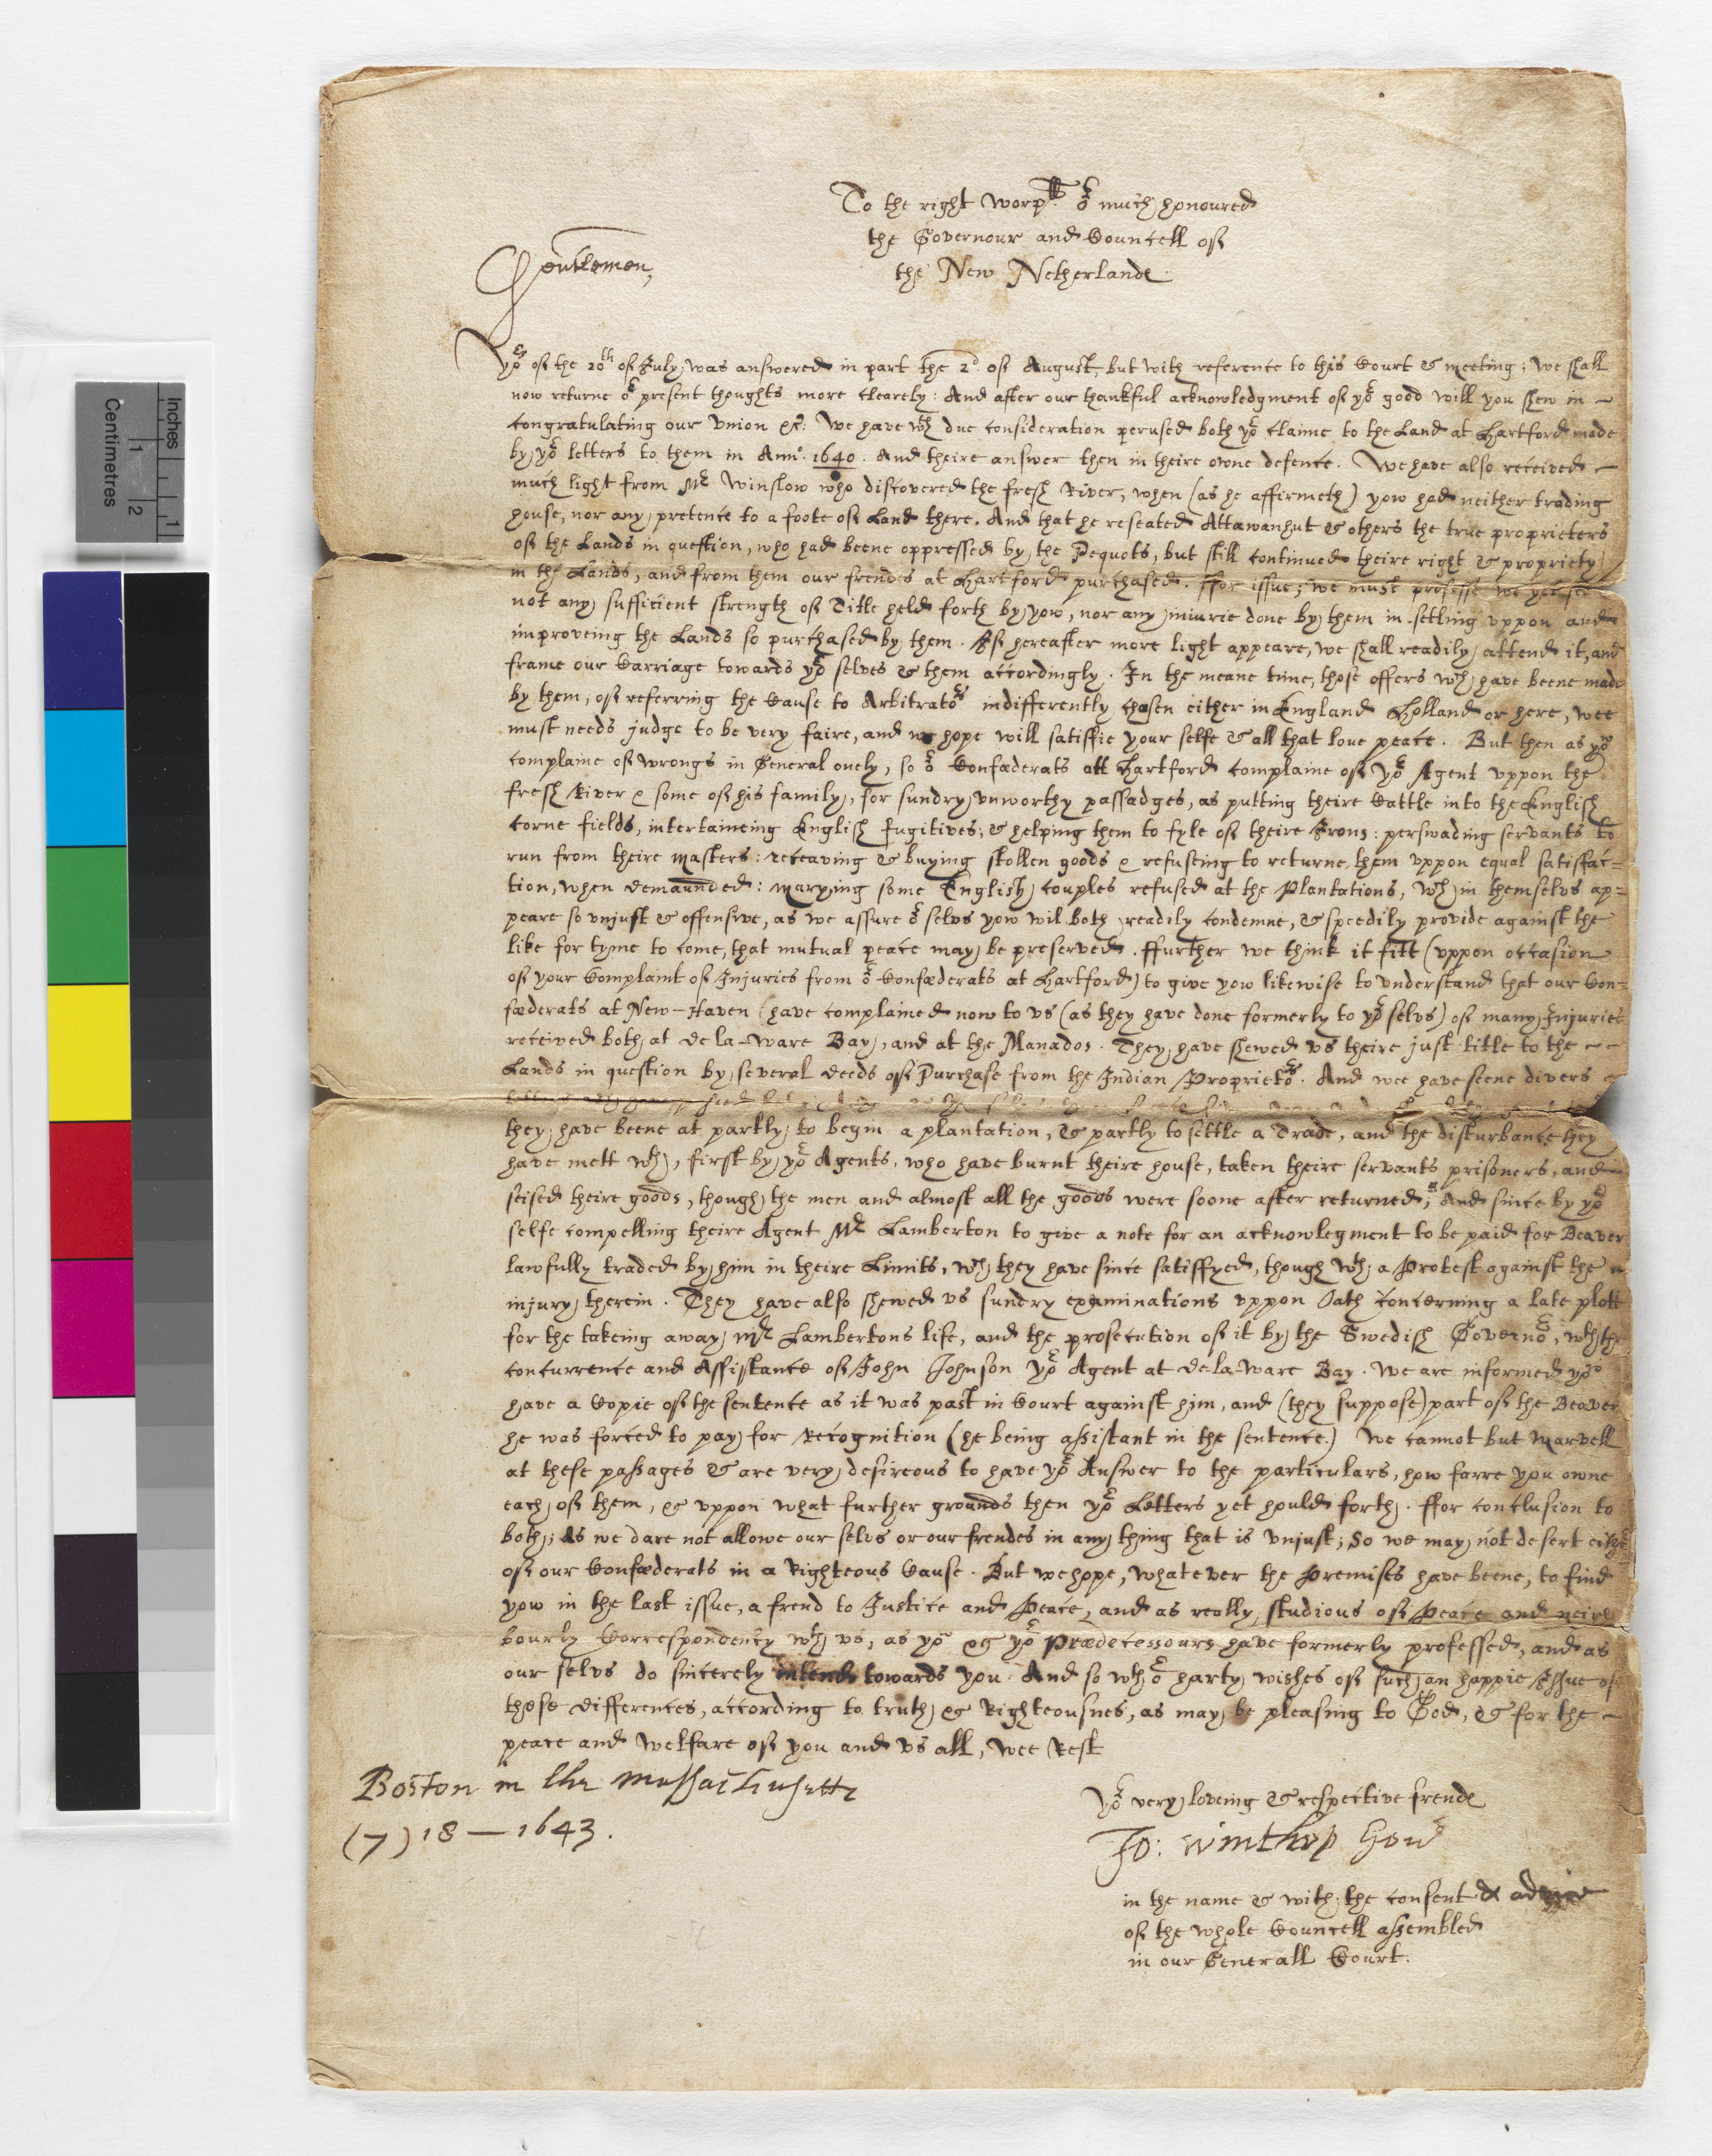 To the right worp^ll & much honoured
the Governour and Councell of
the New Netherlands.
Gentlemen,
Yo^rs of the 20^th of July, was answered in part the 2^d. of August, but with reference to this Court & meeting; We shall
now returne o^r present thoughts more clearely: And after our thankful acknowledgment of yo^r good will you shew in ~
congratulating our Union &c: We have w^th due consideration perused both yo^r claime to the Land at Hartford made
by yo^r letters to them in Ann^o. 1640. And theire answer then in theire owne defence. We have also received ~
much light from M^r Winslow who discovered the fresh River, when (as he affirmeth) yow had neither trading
house, nor any pretence to a foote of Land there. And that he reseated Attawanhut & others the true proprieters
of the Lands in question, who had beene oppressed by the Pequots, but still continued theire right & propriety
in the Lands, and from them our frends at Hartford purchased. ffor issue; we must professe we yet see
not any sufficient strength of Title held forth by yow, nor any iniurie done by them in setling vppon and
improveing the Lands so purchased by them. If hereafter more light appeare, we shall readily attend it, and
frame our Carriage towards yo^r selves & them accordingly. In the meane time, those offers w^ch have beene made
by them, of referring the Cause to Arbitrato^rs indifferently chosen either in England Holland or here, wee
must needs judge to be very faire, and we hope will satisfie your selfe & all that love peace. But then as yo^w
complaine of wrongs in General onely, so o^r Confæderats att Hartford complaine of yo^r Agent vppon the
fresh River & some of his family, for sundry vnworthy passadges, as putting theire Cattle into the English
corne fields, intertaineing English fugitives, & helping them to fyle of theire Irons: perswading servants to
run from theire masters: receaving & buying stollen goods & refuseing to returne them vppon equal satisfac=
tion, when demaunded: marrying some English couples refused at the Plantations, w^ch in themselvs ap=
peare so vnjust & offensive, as we assure o^r selvs yow wil both readily condemne, & speedily provide against the
like for tyme to come, that mutual peace may be preserved. ffurther we think it fitt (vppon occasion
of your Complaint of Injuries from o^r Confæderats at Hartford) to give yow likewise to vnderstand that our Con=
fæderats at New-Haven have complained now to vs (as they have done formerly to yo^r selvs) of many Injuries
received both at De la-ware Bay, and at the Manados. They have shewed vs theire just title to the ~ ~
Lands in question by several deeds of Purchase from the Indian Proprieto^rs. And wee have seene divers
they have beene at partly to begin a plantation, & partly to settle a Trade, and the disturbance they
have mett w^th, first by yo^r Agents, who have burnt theire house, taken theire servants prisoners, and
seised theire goods, though the men and almost all the goods were soone after returned; And since by yo^r
selfe compelling theire Agent M^r Lamberton to give a note for an acknowlegment to be paid for Beaver
lawfully traded by him in theire Limits, w^ch they have since satisfyed, though w^th a Protest against the
injury therein. They have also shewed vs sundry examinations vppon Oath concerning a late plott
for the takeing away M^r Lambertons life, and the prosecution of it by the Swedish Governo^r, w^th the
concurrence and Assistance of John Johnson yo^r Agent at De-la-ware Bay. We are informed yo^w
have a Copie of the sentence as it was past in Court against him, and (they suppose) part of the Beaver
he was forced to pay for Recognition (he being assistant in the sentence.) We cannot but marvell
at these passages & are very desireous to have yo^r Answer to the particulars, how farre you owne
each of them, & vppon what further grounds then yo^r Letters yet hould forth. ffor conclusion to
both; As we dare not allowe our selvs or our frendes in any thing that is vnjust; So we may not desert eith^r
of our Confæderats in a Righteous Cause. But we hope, whatever the Premises have beene, to find
yow in the last issue, a frend to Justice and Peace, and as really studious of Peace and neigh
bourly Correspondency w^th vs, as yo^w & yo^r Prædecessours have formerly professed, and as
our selvs do sincerely intend towards you. And so w^th o^r harty wishes of such an happie Issue of
these differences, according to truth & Righteousnes, as may be pleasing to God, & for the ~
peace and welfare of you and vs all, wee Rest
Boston in the massachusetts
(7) 18 — 1643.
Yo^r very loveing & respective frends
Jo: Winthrop Gov^r
in the name & with the consent & advice
of the whole Councell assembled
in our Generall Court.